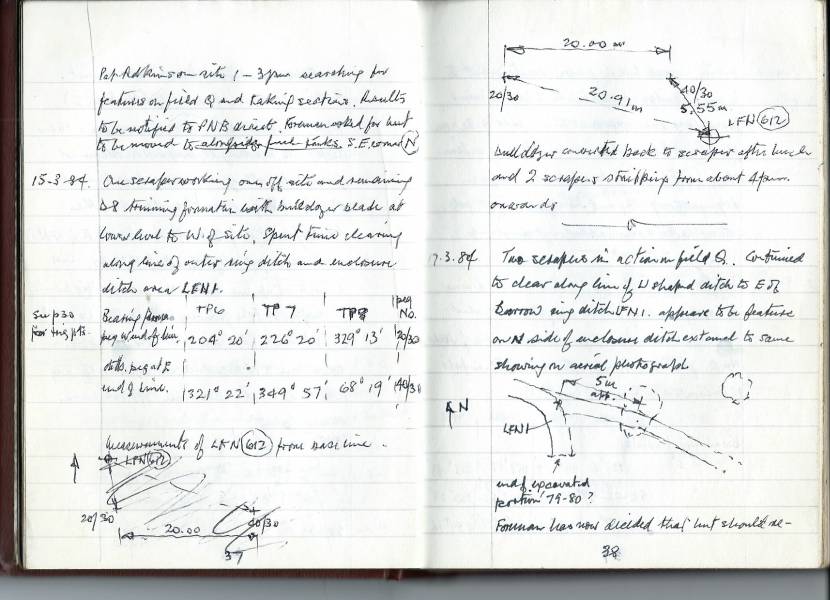 Pat Adkins on site 1 - 3pm searching for
features on field Q and taking section. Results
to be notified to PNB direct. Foreman asked for hut
to be moved to alongside fuel tanks. S.E. corner N
15-3-84. One scraper working on & off site and remaining
D8 trimming formation with bulldozer blade at
lower level to W. of site. Spent time clearing
along line of outer ring ditch and enclosure
ditch area LFN1.
see p30 for trig pts.
Bearing from TP6 TP7 TP8 peg No.
peg W. end of line 204° 20' 226° 20' 329° 13' 20/30
peg at E
end of line. 321° 22' 349° 57' 68° 19' 40/30
Measurements of LFN 612 from base line.
LFN 612
20/30 40/30
20.00
37
20.00 m
20/30 40/30
20.91m 5.55m
LFN 612
Bulldozer converted back to scraper after lunch
and 2 scrapers stripping from about 4pm.
onwards
17.3.84 Two scrapers in action on field Q. Continued
to clear along line of U shaped ditch to E of
Barrow ring ditch LFN1. appears to be feature
on N side of enclosure ditch external to same
showing on aerial photograph
5m
app.
N
LFN1
end of excavated
portion '79-80?
Foreman has now decided that hut should re-
38